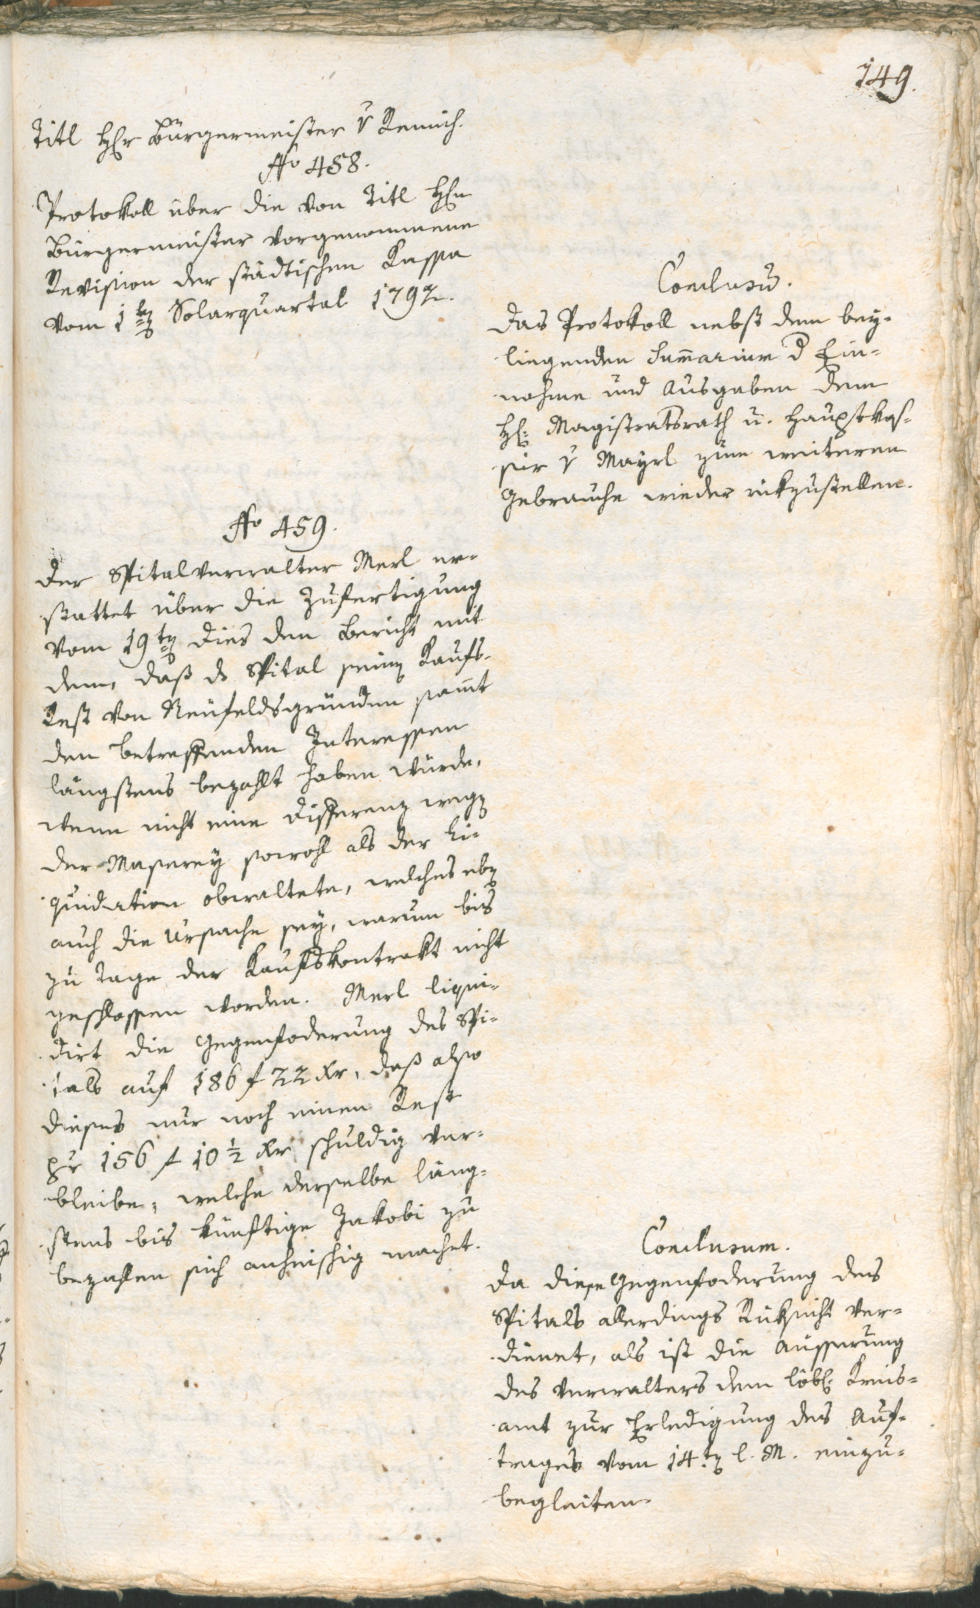 149.
Titl Hr Bürgermeister v Remich.
No 458.
Protokoll über die von Titl Hrn
Bürgermeister vorgenommene
Revision der städtischen Kassa
vom 1ten Solarquartal 1792.
Conclusũ.
Das Protokoll nebst dem bey-
liegenden Sum̄arium d Ein-
nahme und Ausgaben dem
H: Magistratsrath u. Hauptkas-
sir v Mayrl zum weiteren
Gebrauche wieder rükzustellen.
No 459.
Der Spitalverwalter Merl er-
stattet über die Zufertigung
vom 19ten dies den Bericht mit
deme, daß ds Spital seinen Kaufs-
Rest von Neufeldsgründen sam̄t
den betreffenden Interessen
längstens bezahlt haben würde,
wenn nicht eine Differenz wegen
der Masserey sowohl als der Li-
quidation obwaltete, welches eben
auch die Ursache sey, warum bis
zu Tage der Kaufskontrakt nicht
geschlossen worden. Merl liqui-
dirt die Gegenfoderung des Spi-
tals auf 186 f 22 Xr, daß also
dieses nur noch einen Rest
pr 156 f 10 1/2 Xr schuldig ver-
bleibe, welche derselbe läng-
stens bis künftige Jakobi zu
bezahlen sich anheischig machet.
Conclusum.
Da diese Gegenfoderung des
Spitals allerdings Rüksicht ver-
dienet, als ist die Äusserung
des Verwalters dem löbl: Kreis-
amt zur Erledigung des Auf-
trages vom 14ten l. M. einzu-
begleiten.